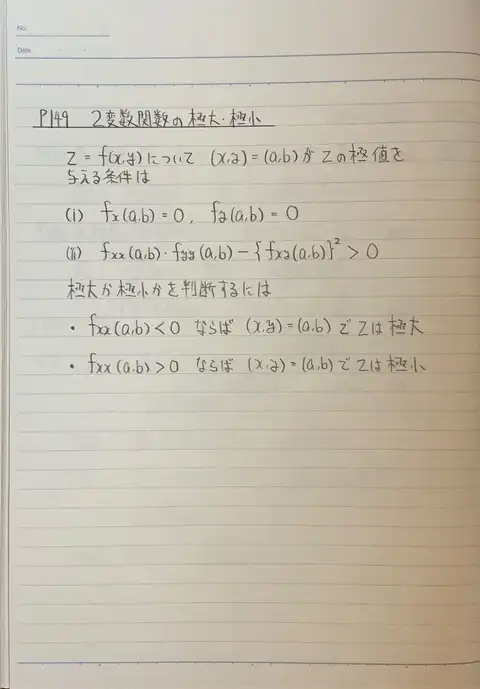 No.
Date
P149 2変数関数の極大・極小
z = f(x,y)について (x,y)=(a,b)がzの極値を
与える条件は
(i) fx(a,b)=0, fy(a,b)=0
(ii) fxx(a,b)・fyy(a,b)-{fxy(a,b)}²>0
極大か極小かを判断するには
・fxx(a,b)<0 ならば (x,y)=(a,b)でzは極大
・fxx(a,b)>0 ならば (x,y)=(a,b)でzは極小